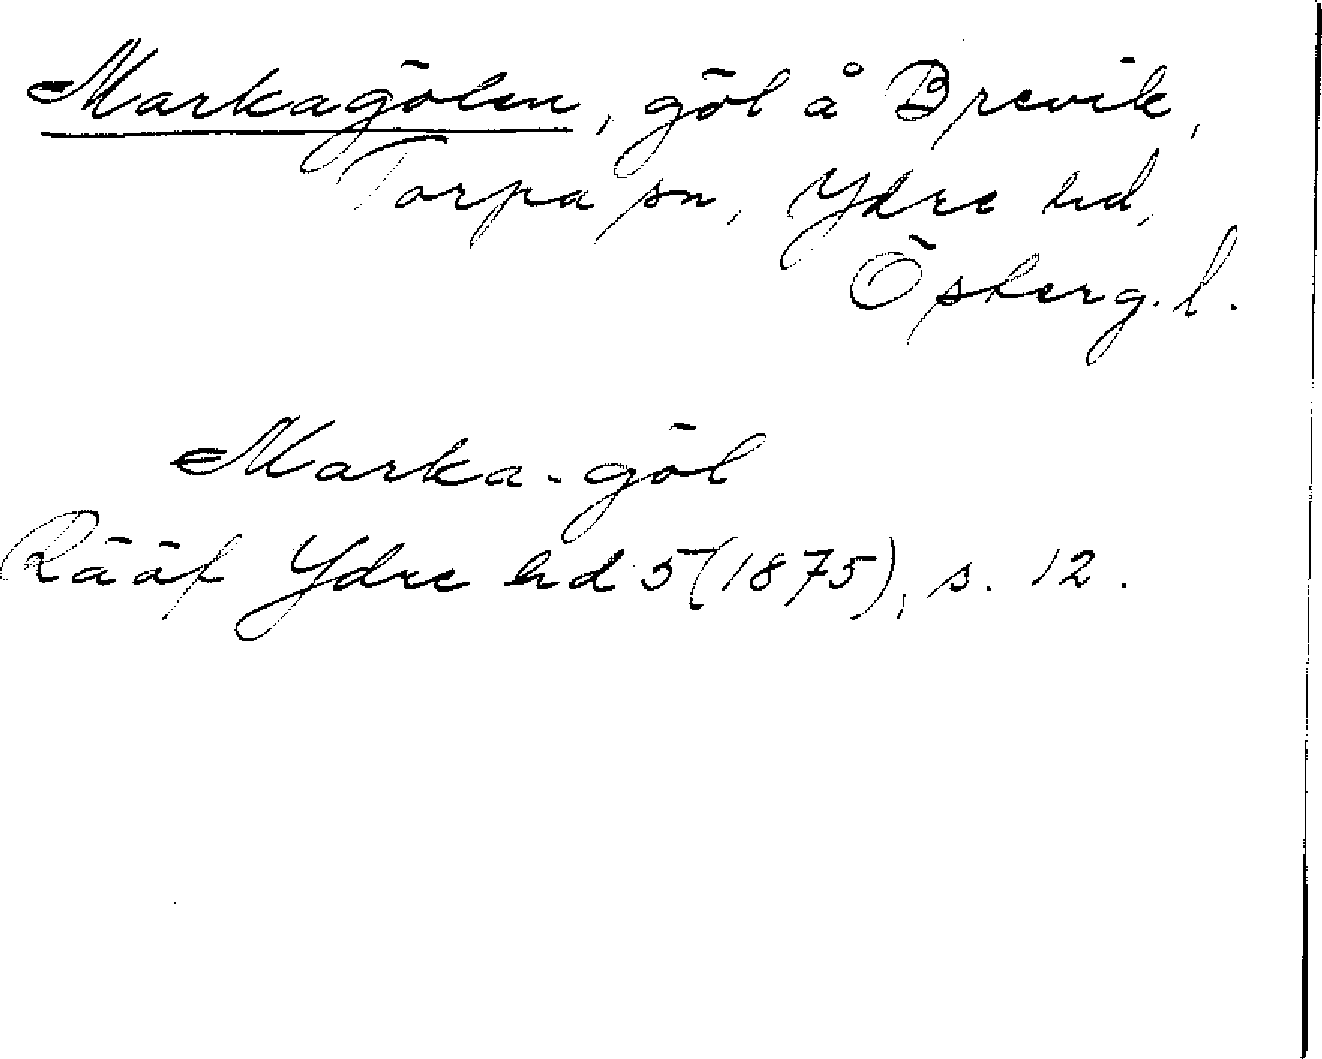 Markagölen, göl å Brevik,
Torpa sn, Ydre hd,
Österg. l.
Marka-göl
Rääf Ydre hd 5 (1875), s. 12.